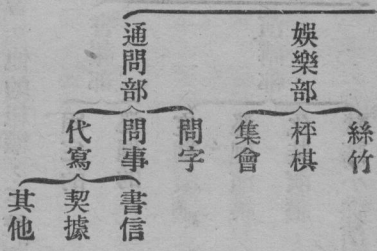 娛樂部
絲竹
枰棋
集會
通問部
問字
問事
代寫
書信
契據
其他